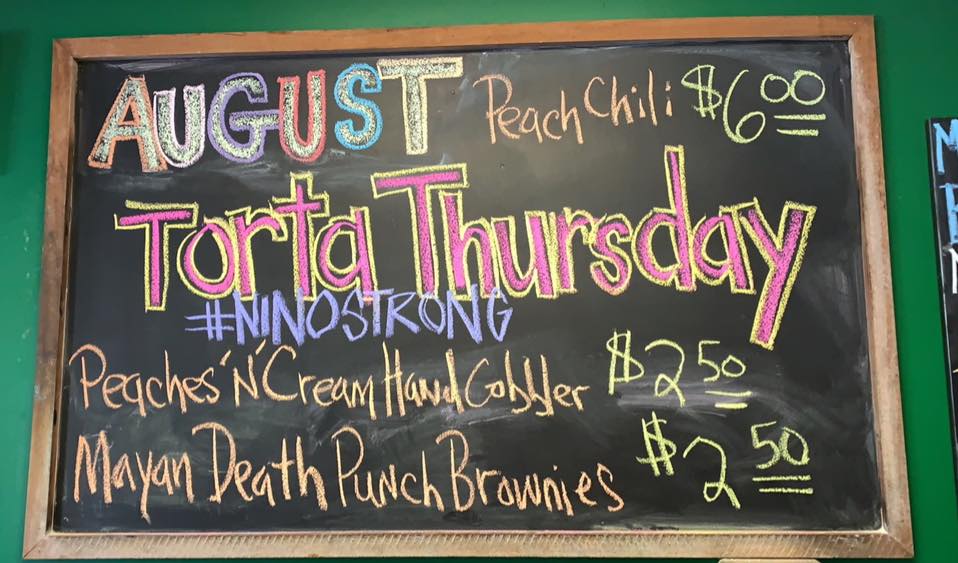 AUGUST Peach Chili $6.00
Torta Thursday
#NINOSTRONG
Peaches 'N' Cream Hand Cobbler $2.50
Mayan Death Punch Brownies $2.50
M